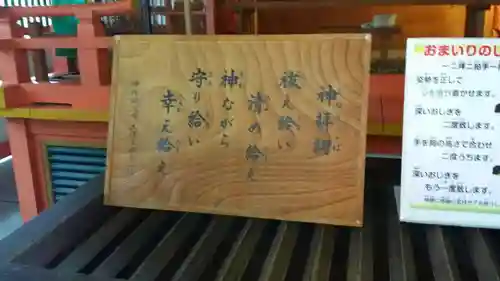 神拝詞
祓え給い
清め給え
神ながら
守り給い
幸え給え
おまいりのし
一二拝二拍手一
姿勢を正して
心を鎮めます。
深いおじぎを
二度致します。
手を胸の高さで合わせ
二度うちます。
深いおじぎを
もう一度致します。